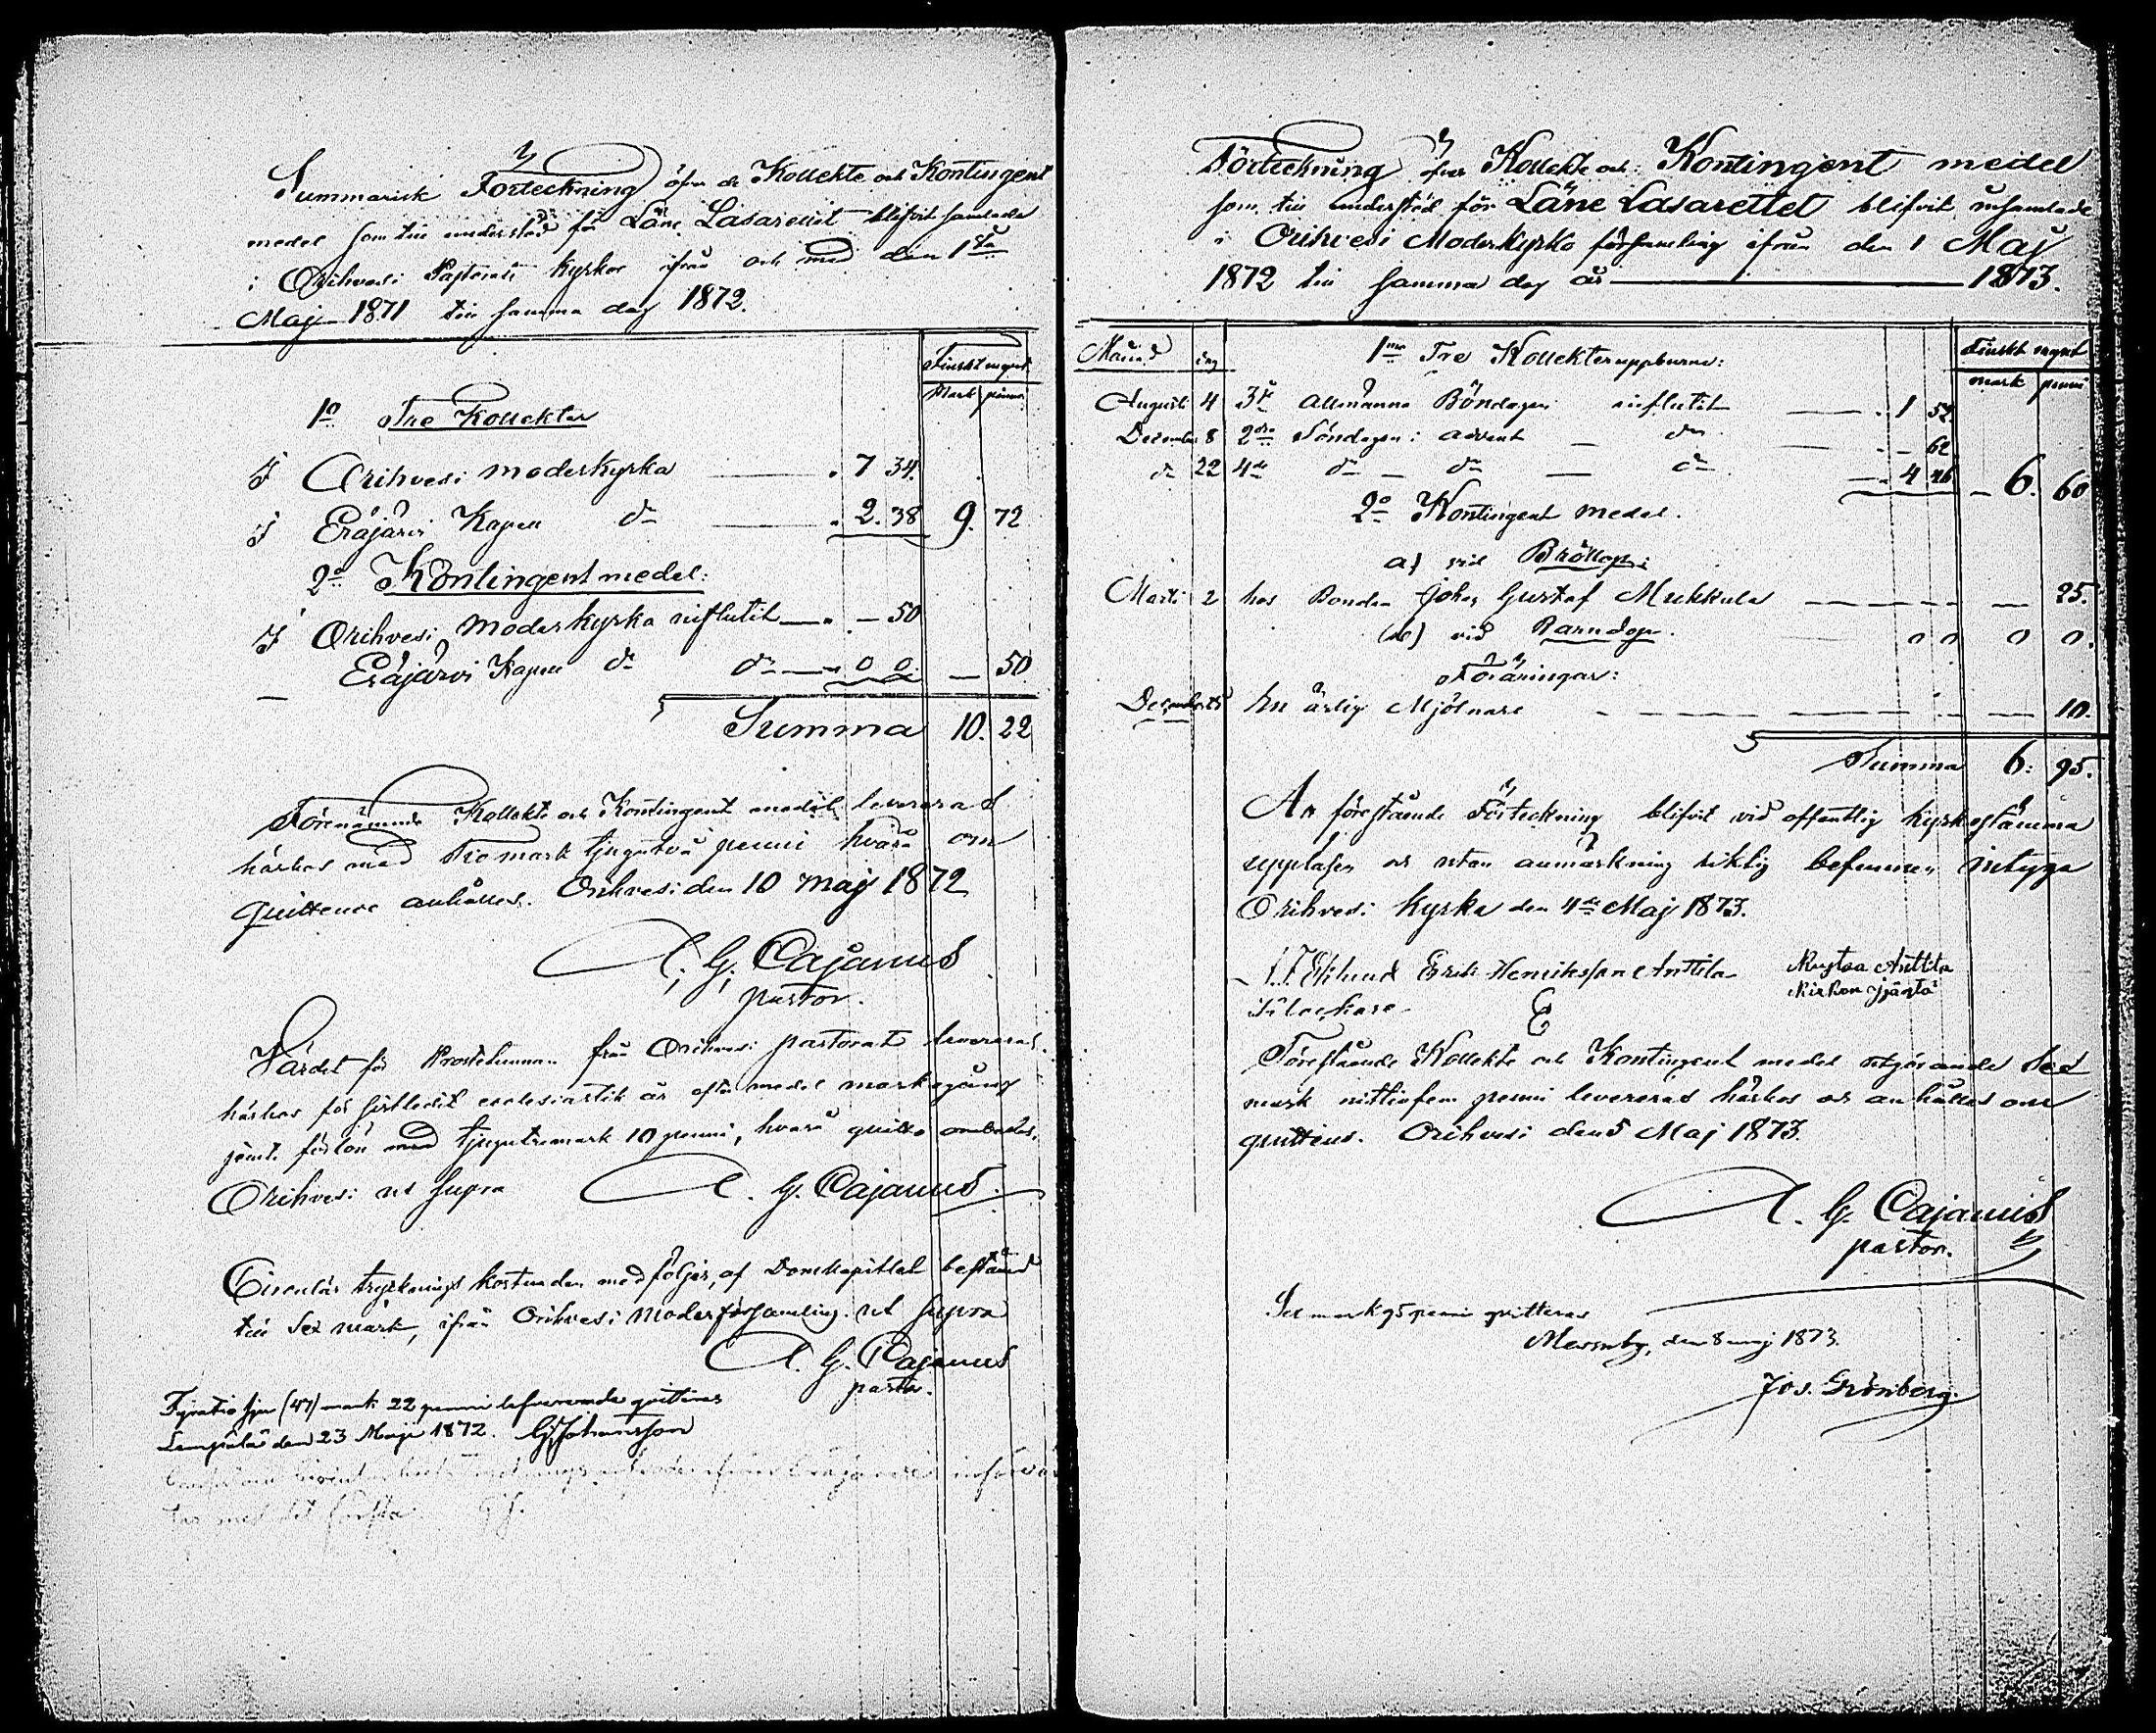 Summarisk Förteckning öfver de Kollekte och Kontingent
medel som till understöd för Läne Lasarettet blifvit samlade
i Orihvesi Pastorats Kyrkor ifrån och med den 1sta
Maji 1871 till samma dag 1872.
Finskt mynt
Mark penni
1o Tre Kollekter
I Orihvesi moderkyrka 7 34.
I Eräjärvi Kapell do 2. 38 9. 72
2o Kontingent medel:
I Orihvesi Moderkyrka influtit — 50
Eräjärvi Kapell do do 0 0. — 50
Summa 10. 22
Förenämnde Kollekte och Kontingent medel levereras
härhos med Tio mark tjugutvå penni hvarå om
Quittence anhålles. Orihvesi den 10 Maj 1872
A. G. Cajanus
pastor.
Värdet för Prostetunnan från Orihvesi pastorat levereras
härhos för ecclesiastik år efter medel markegång
jemte förlön med tjugutremark 10 penni, hvarå quitto anhålles.
Orihvesi ut supra A. G. Cajanus
Circulär tryckningskostnaden medföljer, af Domkapitlet bestämd
till Sex mark, ifrån Orihvesi Moderförsamling. ut supra
A. G. Cajanus
pastor.
Fyratio sju (47) mark 22 penni lefvererade qvitteras
Lempäälä den 23 Maji 1872. G. Johansson
tas med det första. G. J.
Förteckning öfver Kollekte och Kontingent medel
som till understöd för Läne Lasarettet blifvit insamlade
i Orihvesi Moderkyrko församling ifrån den 1 Maj
1872 till samma dag år — 1873.
Månad dag 1mo Tre Kollekter uppburne: Finskt mynt
mark penni
Augusti 4 3dje Allmänna Böndagen influtit 1 52
December 8 2dra Söndagen i advent — do — 62
do 22 4de do — do — do 4 46 6. 60
2o Kontingent medel.
a) vid Bröllop:
Marti 2 hos Bonden Johan Gustaf Mukkula — 25.
b) vid Barndop. 0 0 0 0.
Föräringar:
December En ärlig Mjölnare — 10.
Summa 6: 95.
At förestående Förteckning blifvit vid offentlig kyrkostämma
uppläsen och utan anmärkning riktig befunnen intyga
Orihvesi Kyrka den 4de Maj 1873.
Eklund Erik Henriksson Anttila Kustaa Anttila
Kirkon
E
Förestående Kollekte och Kontingent medel utgörande Sex
mark nittiofem penni levereras härhos och anhålles om
quittens. Orihvesi den 5 Maj 1873.
A. G. Cajanus
pastor.
Sex mark 95 penni qvitteras
Messuby, den 8 maj 1873.
Jos. Grönberg.